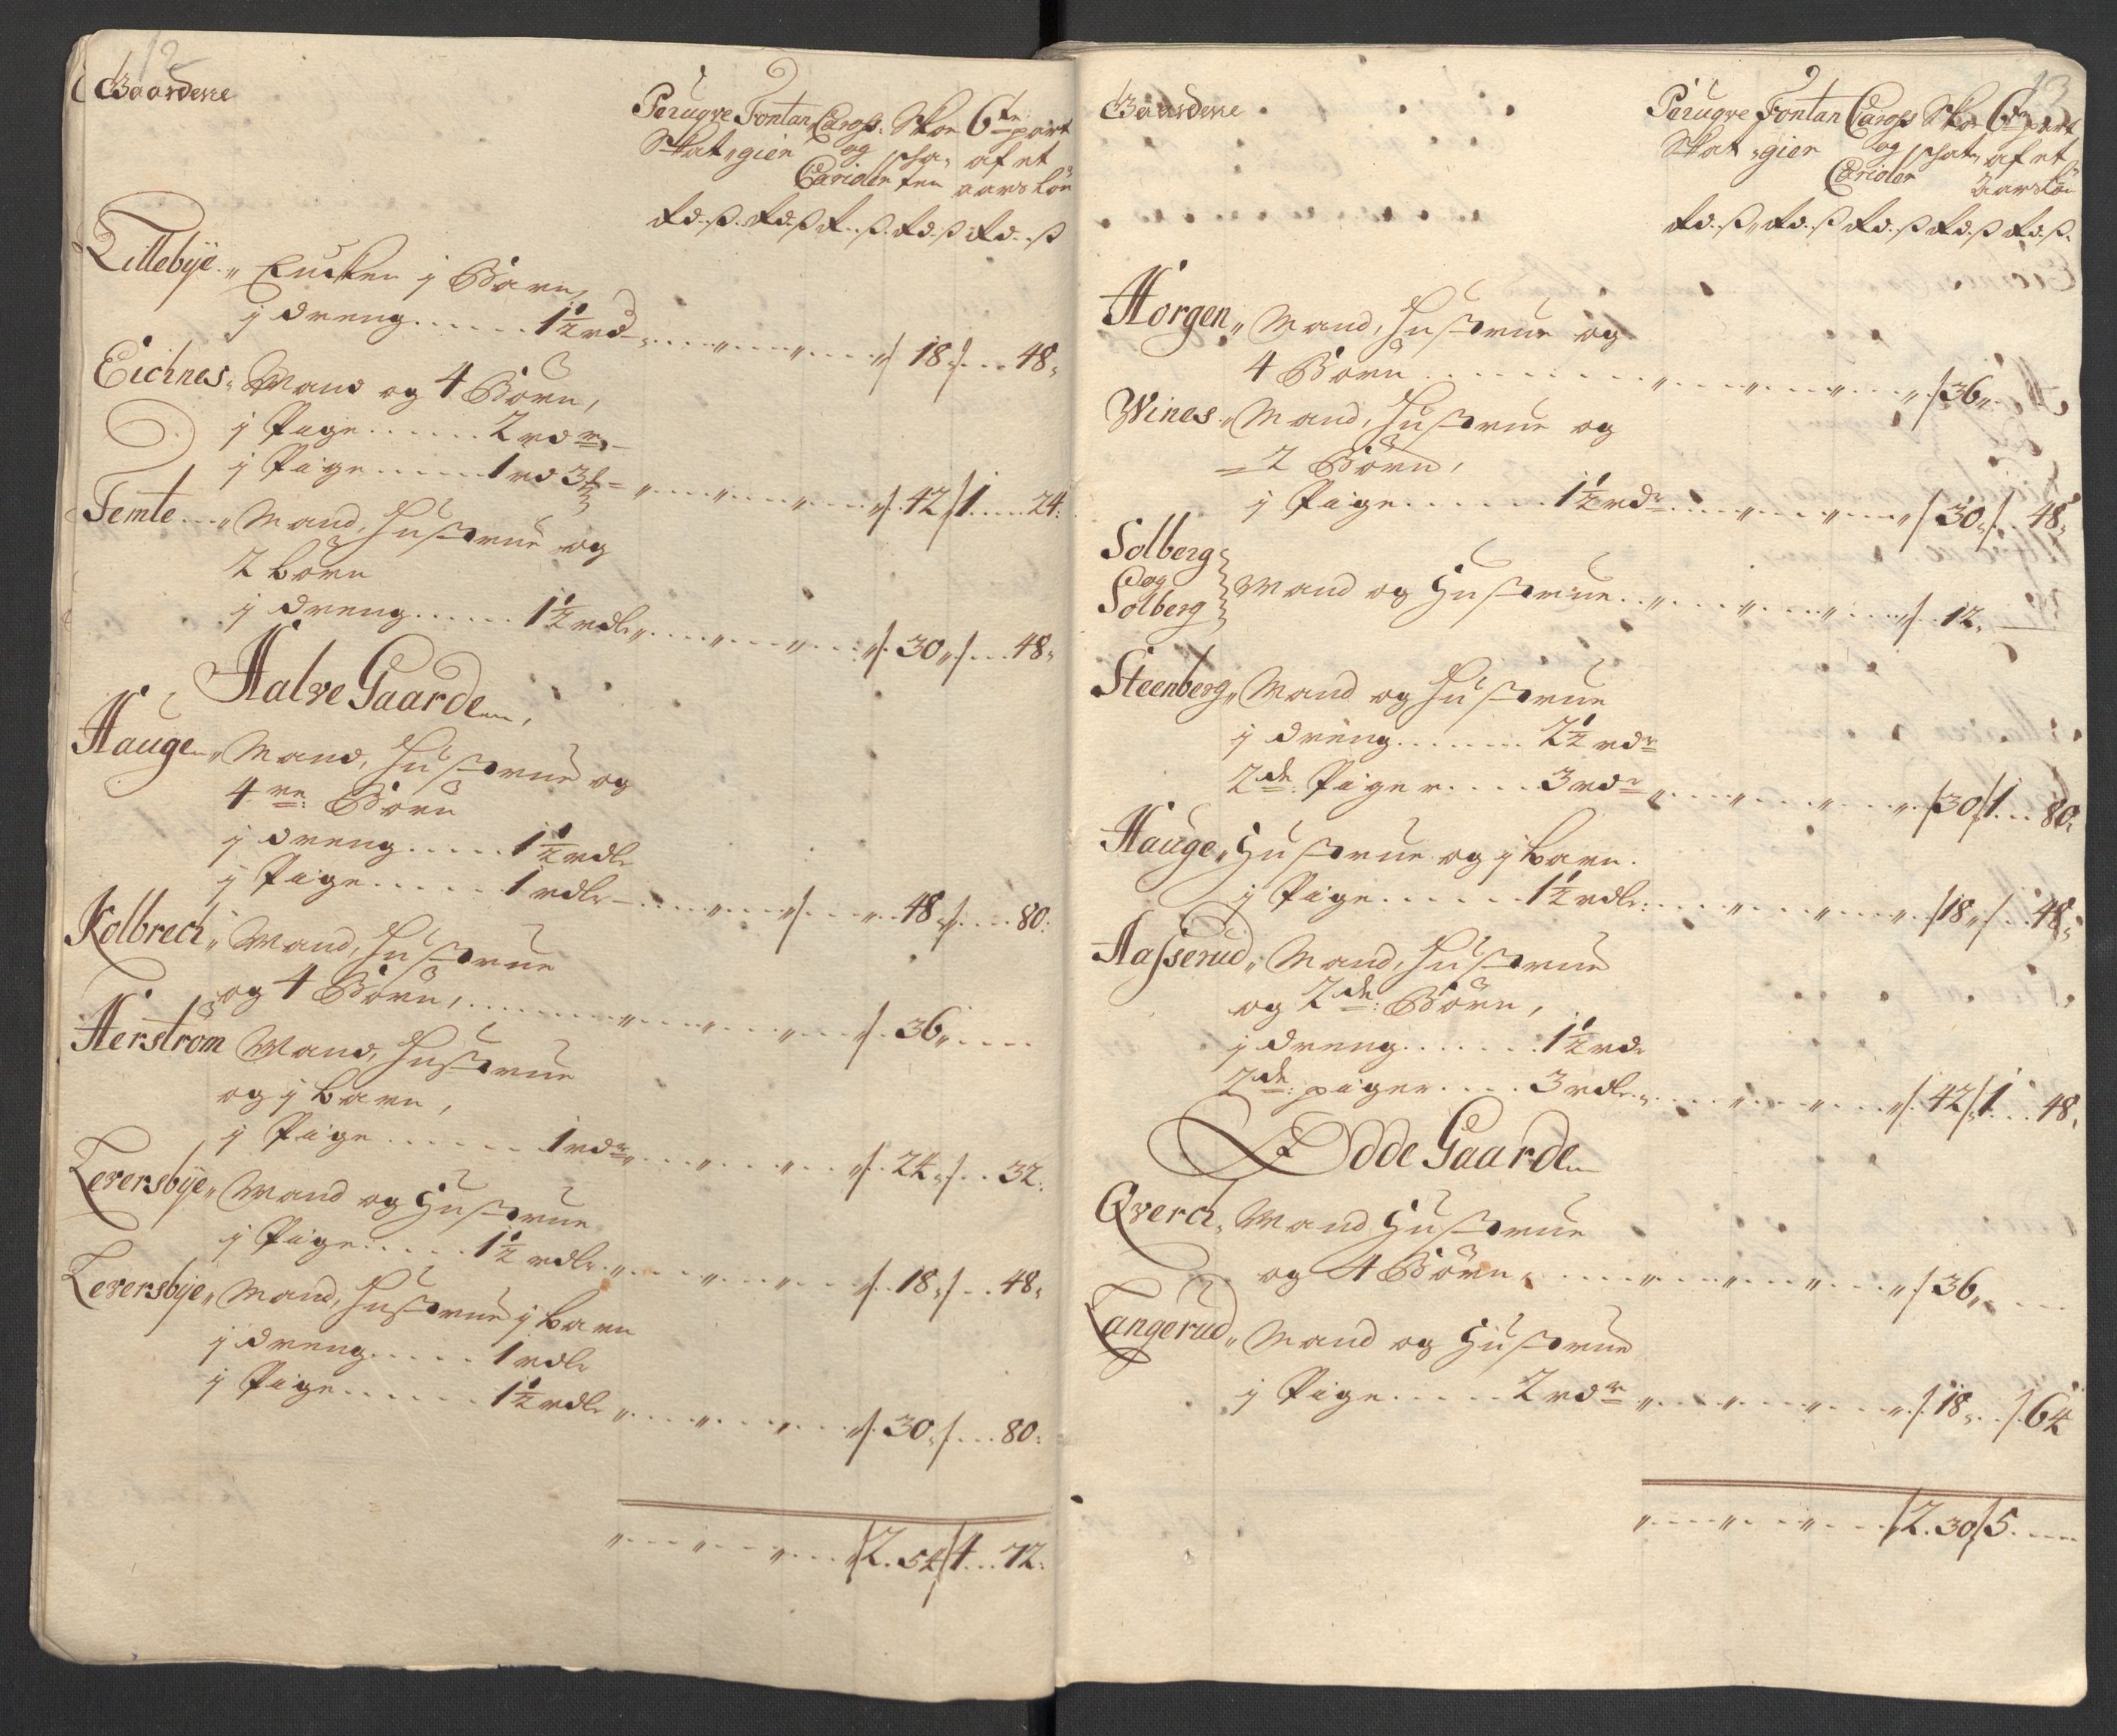 12
Gaardene
Perugve Fontan Caross: Skoe 6te part
Skat gier og Skat af et
Carioler ten aarsløn
Rd. ß. Rd. ß R. ß. Rd. ß Rd. ß
Lillebÿe „ Encken j Barn,
j dreng...... 1½ rd 18 48
Eichnes „ Mand og 4 Børn,
j Pige...... 2 rdr
j Pige..... 1 rd 3 42 1 24
Femte „ Mand, Hustrue og
2 børn
j dreng...... 1½ rdlr 30 48
Halve Gaarden,
Haugen „ Mand, Hustrue og
4re Børn
j dreng..... 1½ rdlr
j Pige...... 1 rdlr 48 80
Kolbrech „ Mand, Hustrue
og 4 Børn, 36
Herström Mand, Hustrue
og j barn,
j Pige...... 1 rdr 24 32
Leversbÿe „ Mand og Hustrue
j Pige..... 1½ rdlr 18 48
Leversbÿe „ Mand, Hustrue j barn
j dreng..... 1 rdlr
j Pige...... 1½ rdlr 30 80
2. 54 4 72
13
Gaardene
Perugve Fontan Caross Skoe 6te part
Skat gier og Skat af et
Carioler Aarsløn
Rd. ß Rd. ß Rd. ß Rd. ß Rd. ß
Horgen „ Mand, Hustrue og
4 Børn 36
Wines „ Mand, Hustrue og
2 Børn,
j Pige...... 1½ rdr 30 48
Solberg
og
Solberg Mand og Hustrue 12
Steenberg „ Mand og Hustrue
j dreng...... 2½ rdr
2de Piger.... 3 rdr 30 1 80
Hauge „ Hustrue og j barn.
j Pige...... 1½ rdlr 18 48
Hasserud „ Mand, Hustrue
og 2de Børn,
j dreng...... 1½ rdr
2de piger.... 3 rdlr 42 1 48
Ødde Gaarde
Qvern „ Mand Hustrue
og 4 Børn 36
Langerud „ Mand og Hustrue
j Pige..... 2 rdr 18 64
2. 30 5